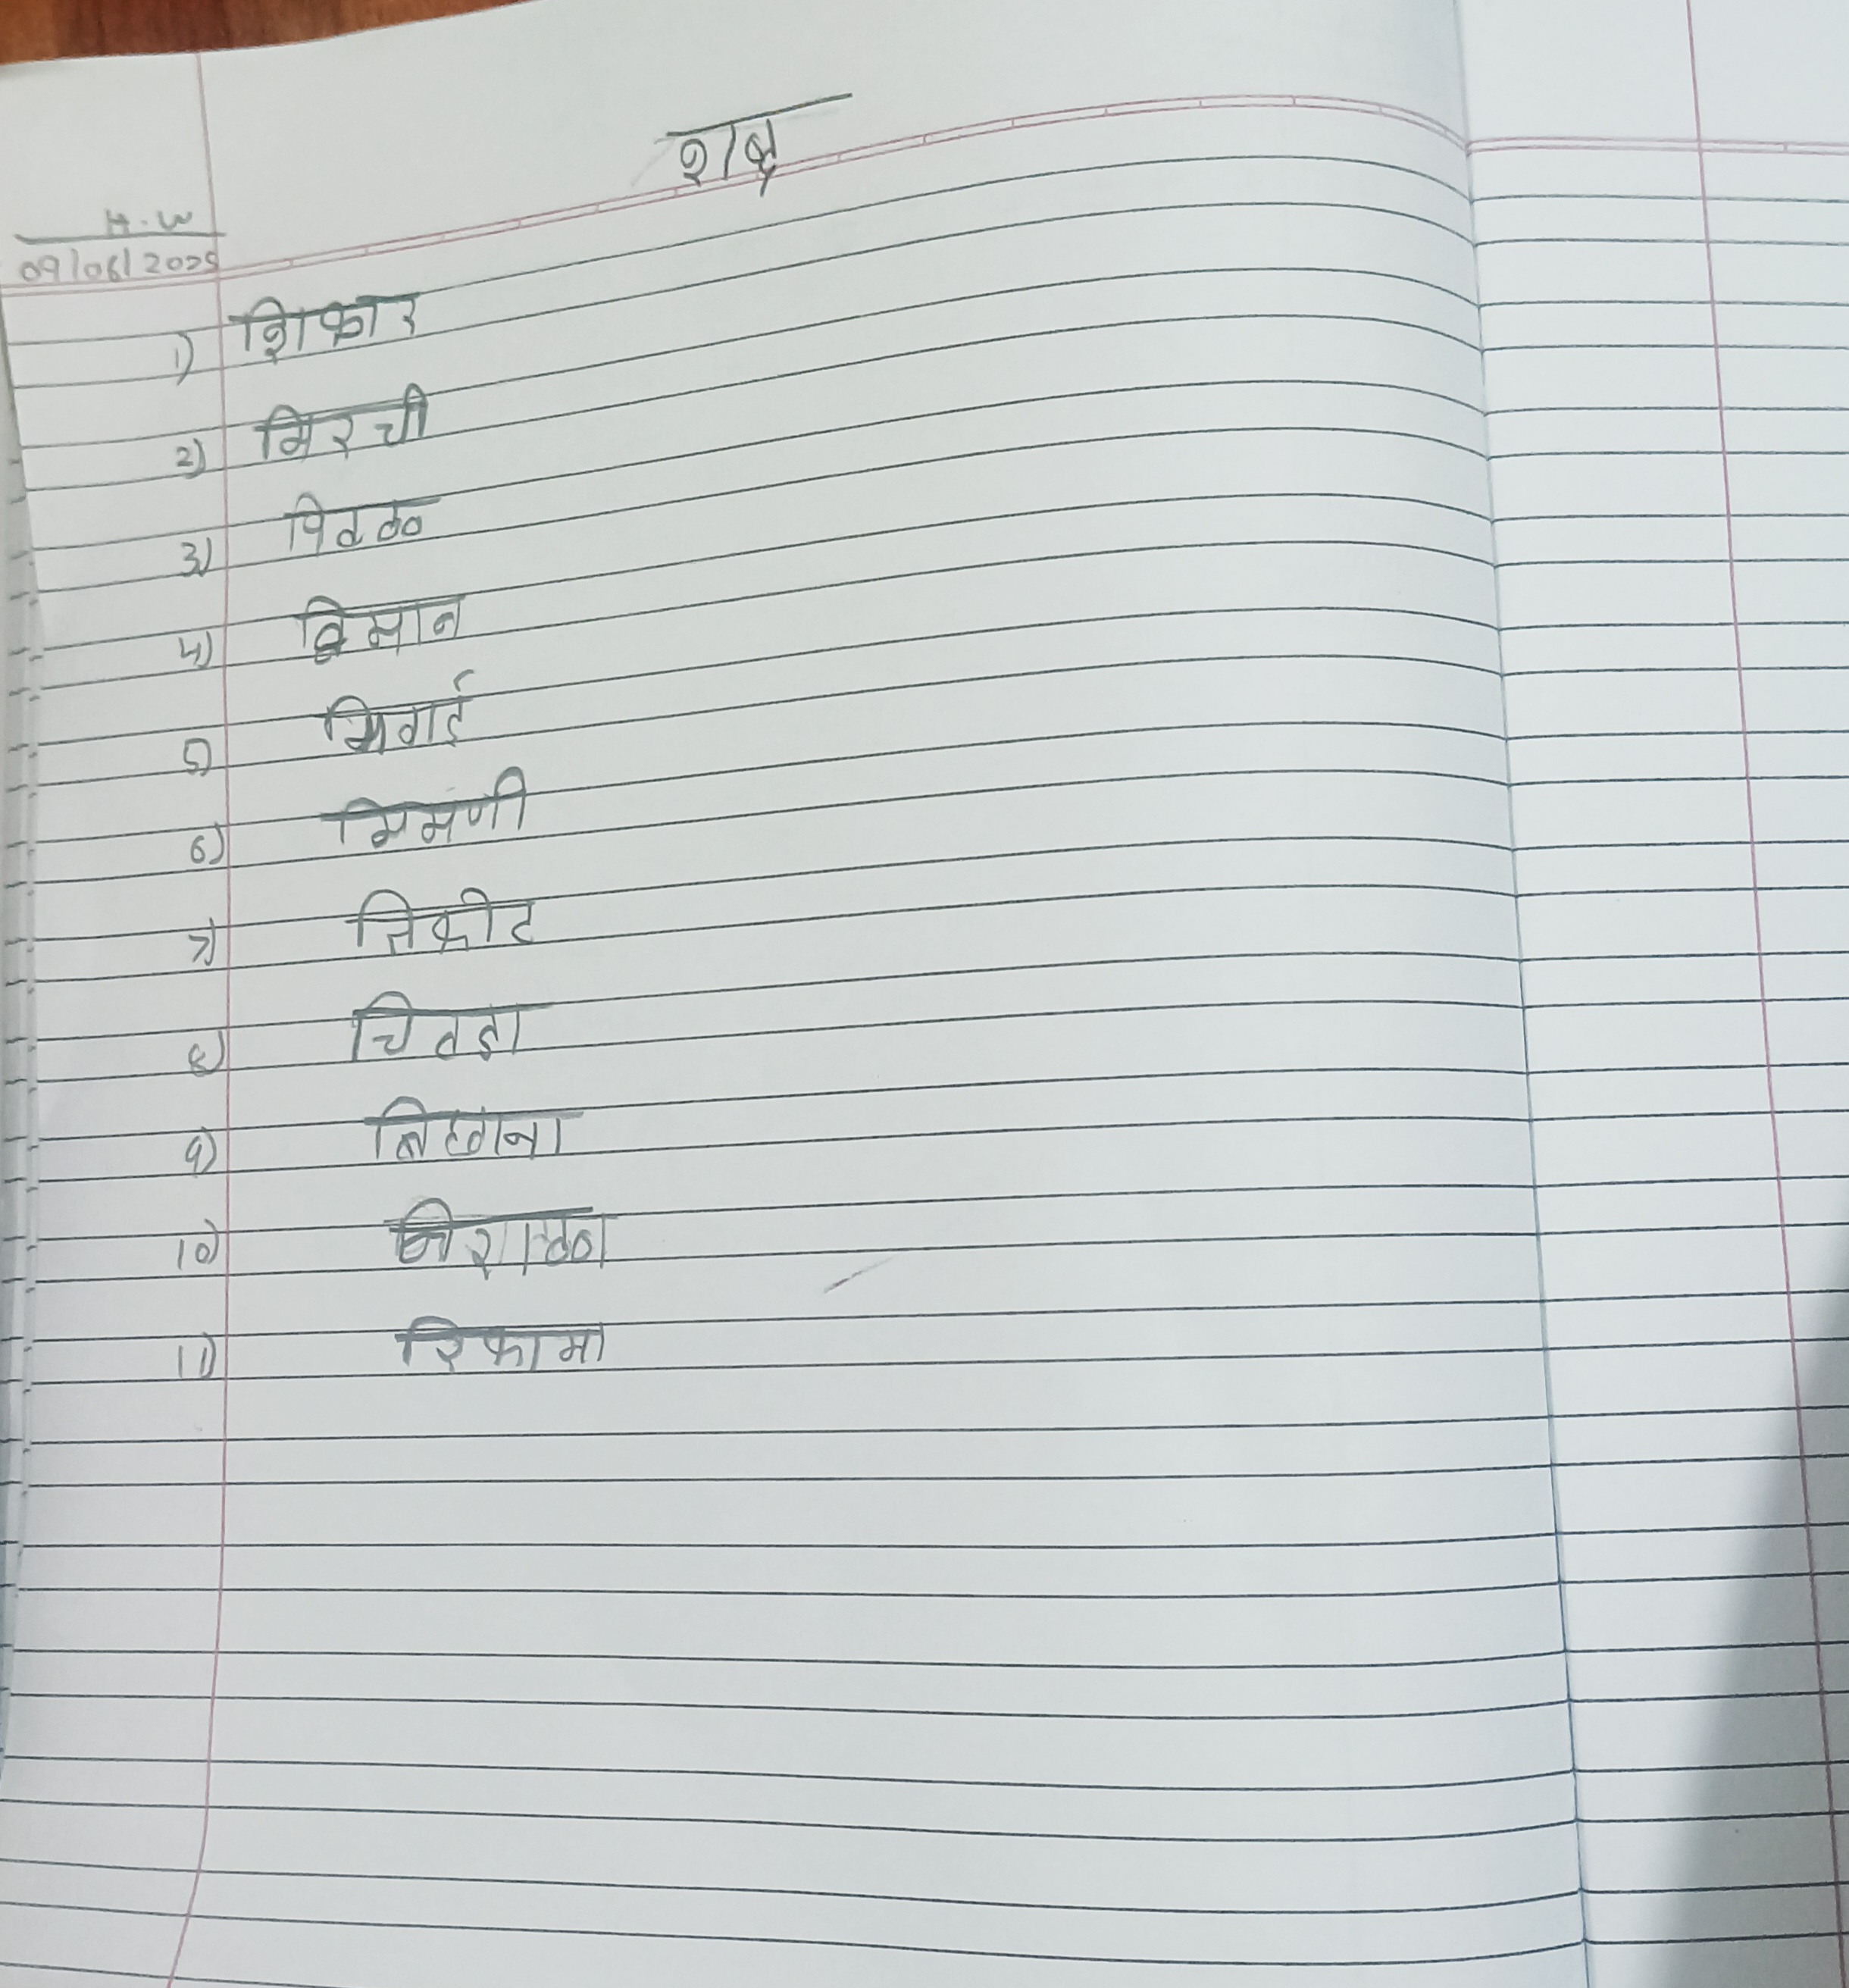 शब्द
H.W
09/06/2025
1) शिकार
2) मिरची
3) पिवळ
4) विमान
5) मिठाई
6) मिमणी
7) तिकीट
8) चिवडा
9) बिछाना
10) निराळा
11) रिकामा